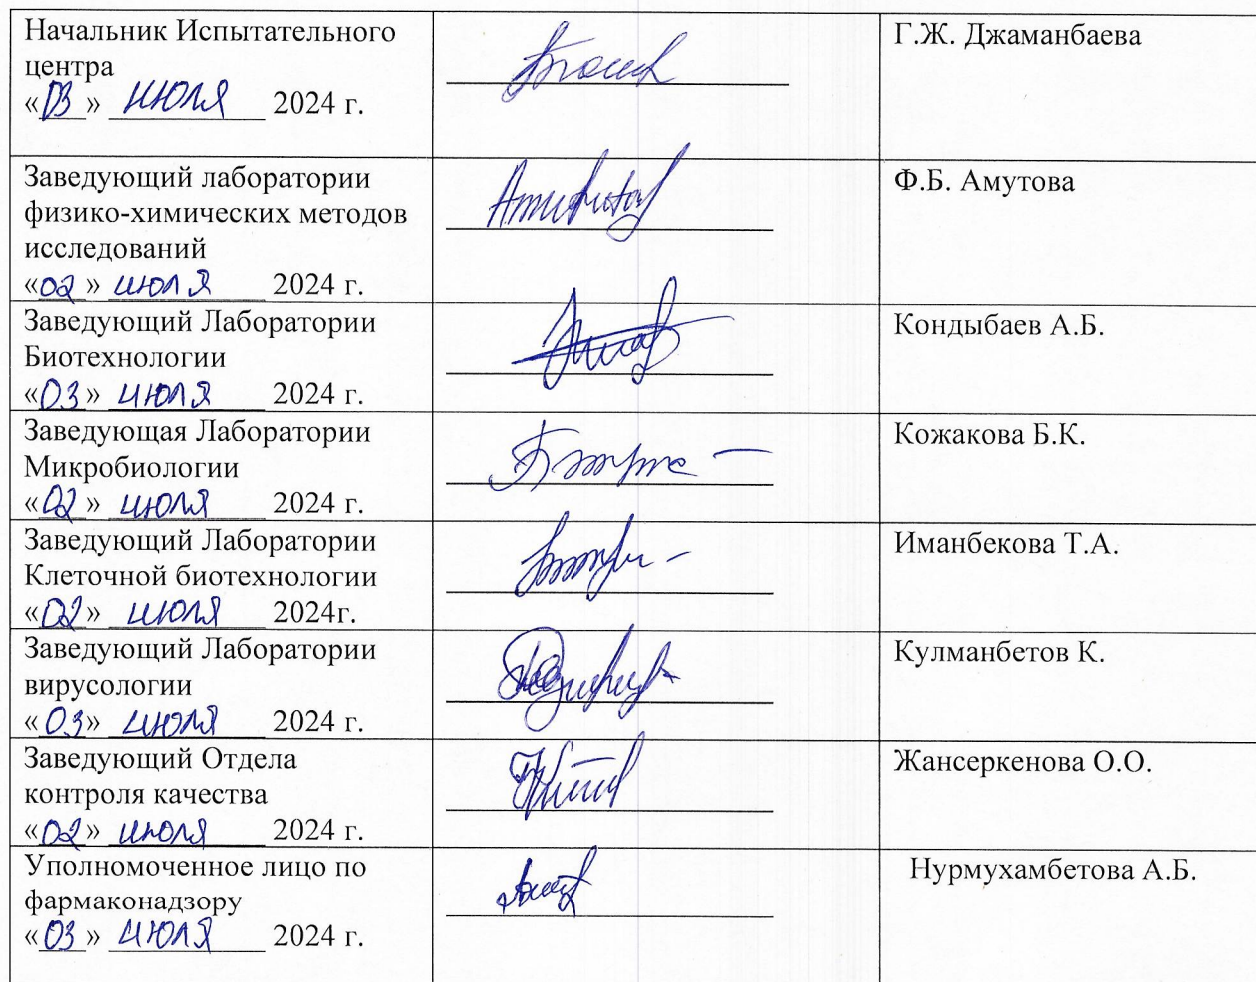 Начальник Испытательного
центра
«03» июля 2024 г.
Г.Ж. Джаманбаева
Заведующий лаборатории
физико-химических методов
исследований
«02» июля 2024 г.
Ф.Б. Амутова
Заведующий Лаборатории
Биотехнологии
«03» июля 2024 г.
Кондыбаев А.Б.
Заведующая Лаборатории
Микробиологии
«02» июля 2024 г.
Кожакова Б.К.
Заведующий Лаборатории
Клеточной биотехнологии
«02» июля 2024г.
Иманбекова Т.А.
Заведующий Лаборатории
вирусологии
«03» июля 2024 г.
Кулманбетов К.
Заведующий Отдела
контроля качества
«02» июля 2024 г.
Жансеркенова О.О.
Уполномоченное лицо по
фармаконадзору
«03» июля 2024 г.
Нурмухамбетова А.Б.